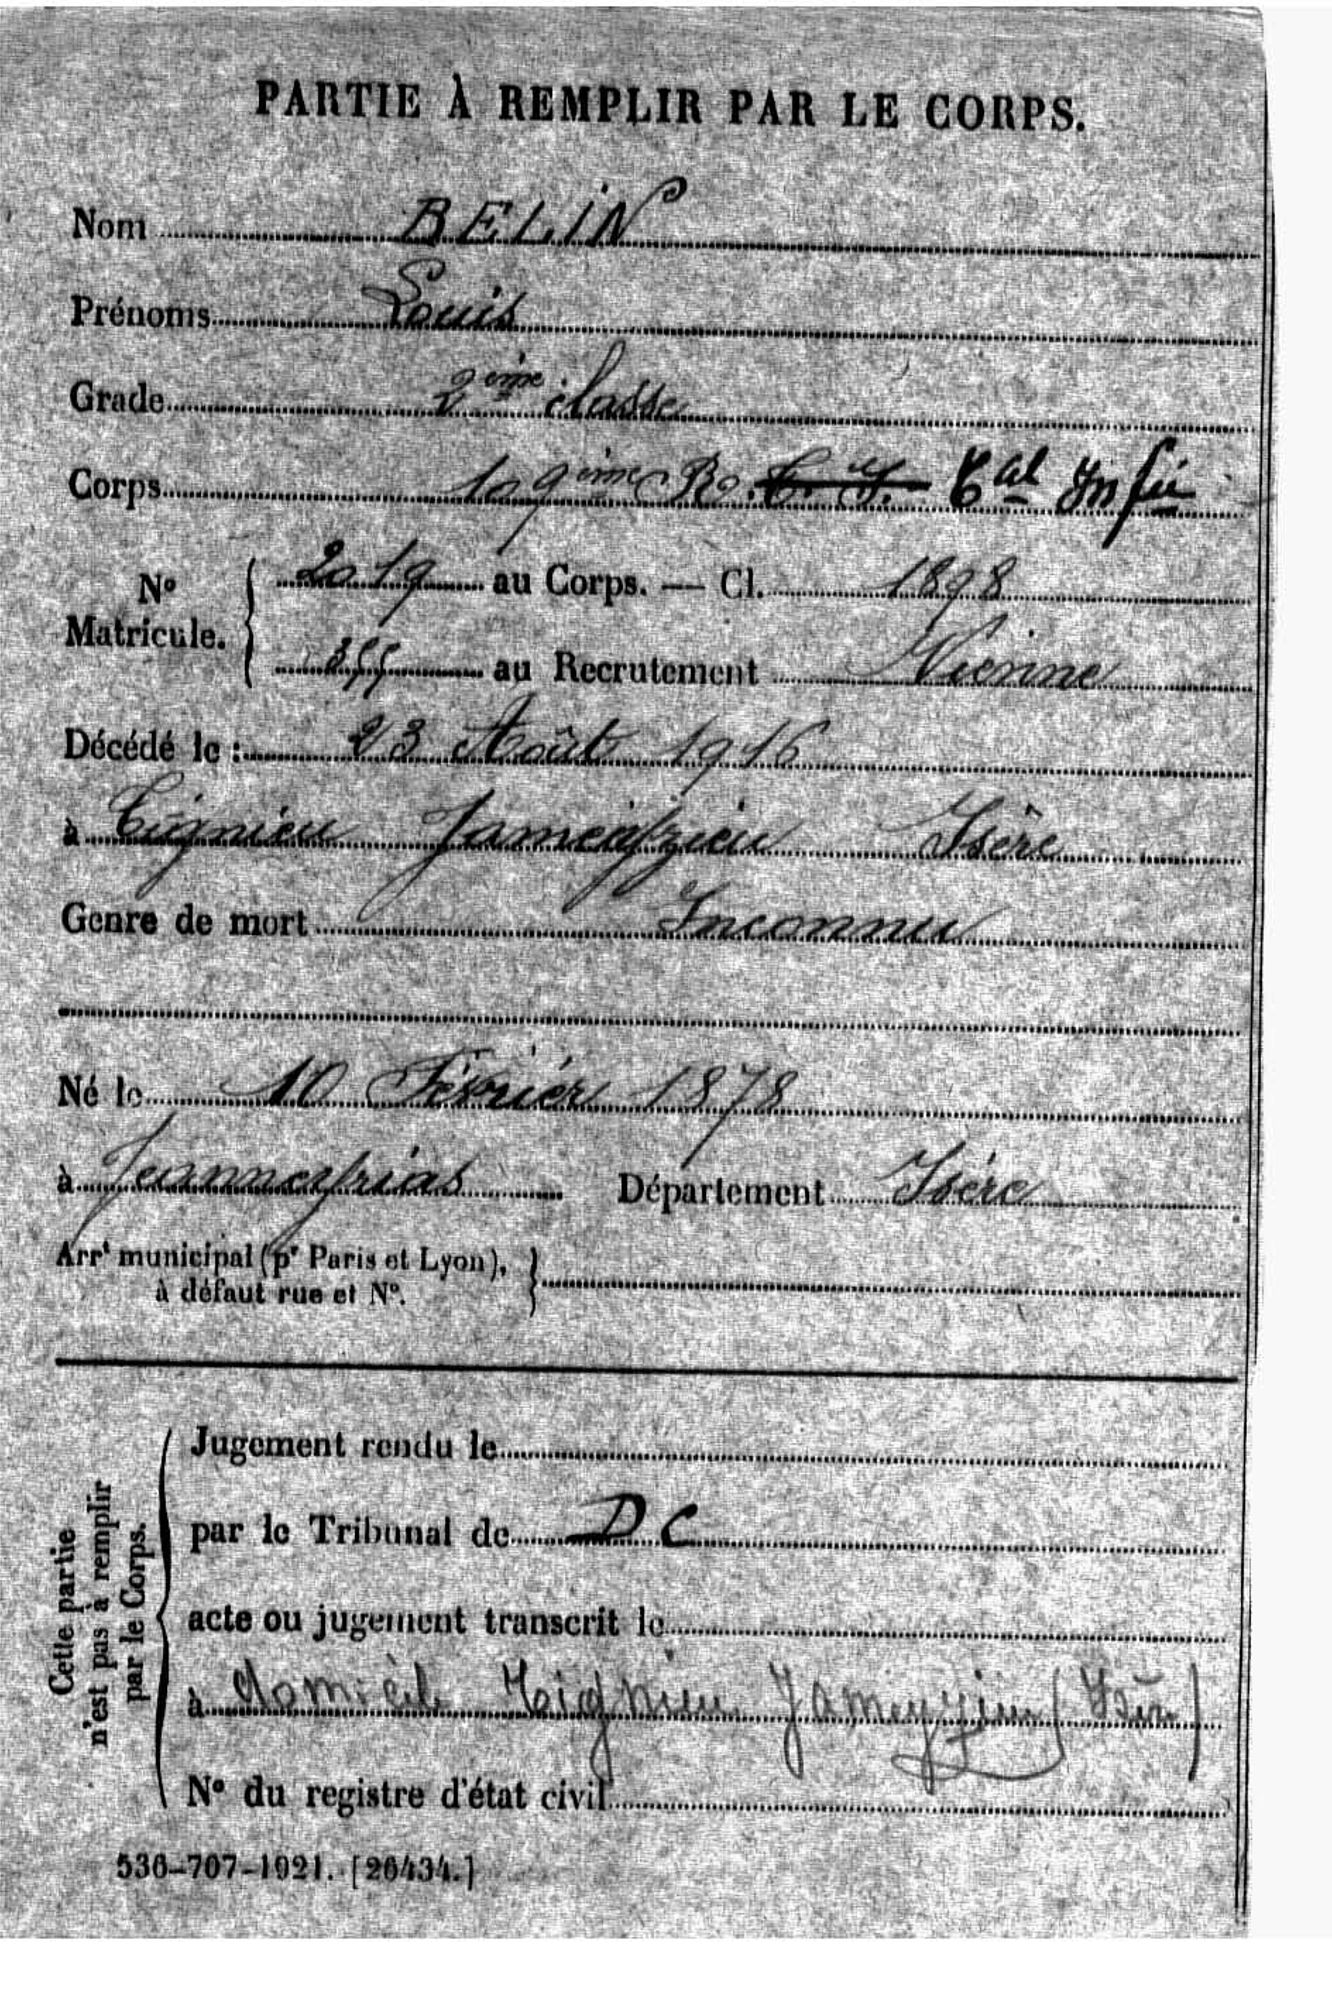 PARTIE À REMPLIR PAR LE CORPS.
Nom BELIN
Prénoms Louis
Grade 2ème classe
Corps 109ème R. C. I. Cal Infie
No Matricule. 2019 au Corps. — Cl. 1898
355 au Recrutement Vienne
Décédé le : 23 Août 1916
à Tignieu Jameyzieu Isère
Genre de mort Inconnu
Né le 10 Février 1878
à Janneyrias Département Isère
Arrt municipal (pr Paris et Lyon),
à défaut rue et No.
Cette partie
n'est pas à remplir
par le Corps.
Jugement rendu le
par le Tribunal de DC
acte ou jugement transcrit le
à domicile Tignieu Jameyzieu (Isère)
No du registre d'état civil
536-707-1921. [26434.]